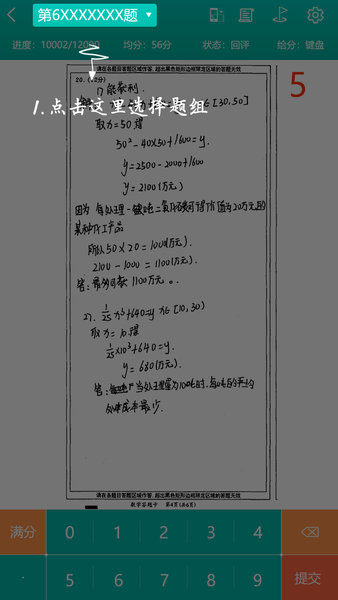 第6XXXXXXX题
进度：10002/12000 均分：56分 状态：回评 给分：键盘
请在各题目答题区域作答，超出黑色矩形边框限定区域的答案无效
5
20.(12分)
1.点击这里选择题组
能获利.
[30,50]
取x=50得
50²-40×50+1600=y.
y=2500-2000+1600
y=2100(万元)
因为 每处理一吨二氧化碳可得价值为20万元的
某种化工产品
所以50×20=1000(万元).
2100-1000=1100(万元).
答: 1100万元。
2). 1/25 x³+640=y x∈[10,30)
取x=10得
1/25×10³+640=y.
y=680(万元).
答: 当处理量为10吨时,每吨的平均
处理成本最少.
请在各题目答题区域作答，超出黑色矩形边框限定区域的答案无效
数学答题卡 第4页(共6页)
满分 0 1 2 3 4
· 5 6 7 8 9 提交